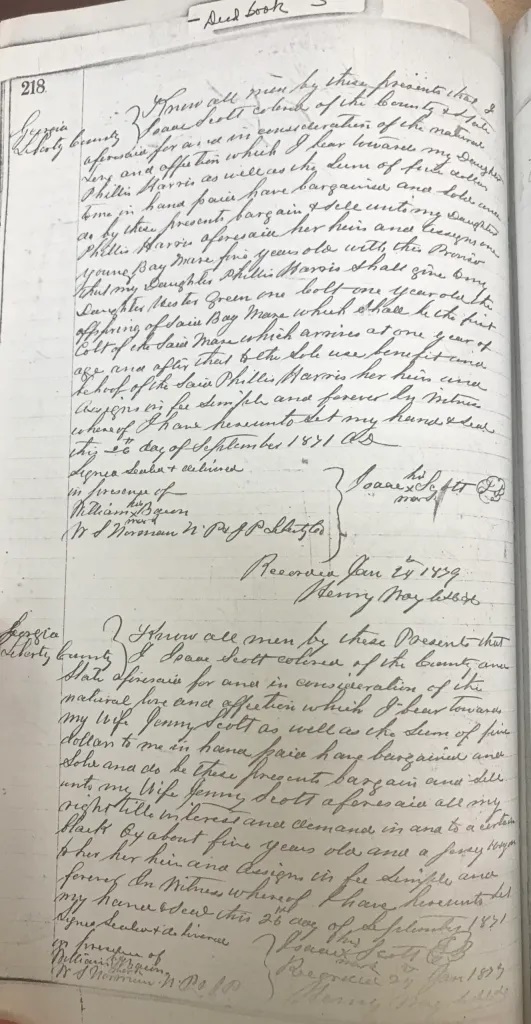 Deed book
218
Georgia
Liberty County
Know all men by these presents that I
Isaac Scott colored of the County & State
aforesaid for and in consideration of the natural
love and affection which I bear towards my Daughter
Phillis Harris as well as the sum of five dollars
to me in hand paid have bargained and sold and
do by these presents bargain & sell unto my Daughter
Phillis Harris aforesaid her heirs and assigns one
young Bay Mare five years old with this Proviso
that my Daughter Phillis Harris shall give to my
Daughter Hester Green one colt one year old the
offspring of said Bay Mare which shall be the first
Colt of the said Mare which arrives at one year of
age and after that to the sole use benefit and
behoof of the said Phillis Harris her heirs and
assigns in fee simple and forever In Witness
whereof I have hereunto set my hand & seal
this 26th day of September 1871 AD
Signed Sealed & delivered
in presence of
William his x mark Bacon
W S Norman N.P. & J P Liberty Co
Isaac his x mark Scott
Recorded Jan 24th 1879
Henry Way
Georgia
Liberty County
Know all men by these Presents that
I Isaac Scott colored of the County and
State aforesaid for and in consideration of the
natural love and affection which I bear towards
my Wife Jenny Scott as well as the sum of five
dollars to me in hand paid have bargained and
sold and do be these presents bargain and sell
unto my Wife Jenny Scott aforesaid all my
right title interest and demand in and to a certain
black Ox about five years old and a
to her her heirs and assigns in fee simple and
forever In Witness whereof I have hereunto set
my hand & seal this 26th day of September 1871
Signed Sealed & delivered
in presence of
William his x mark Bacon
W S Norman N. P. & J P
Isaac his x mark Scott
Recorded 24th Jan 1879
Henry Way